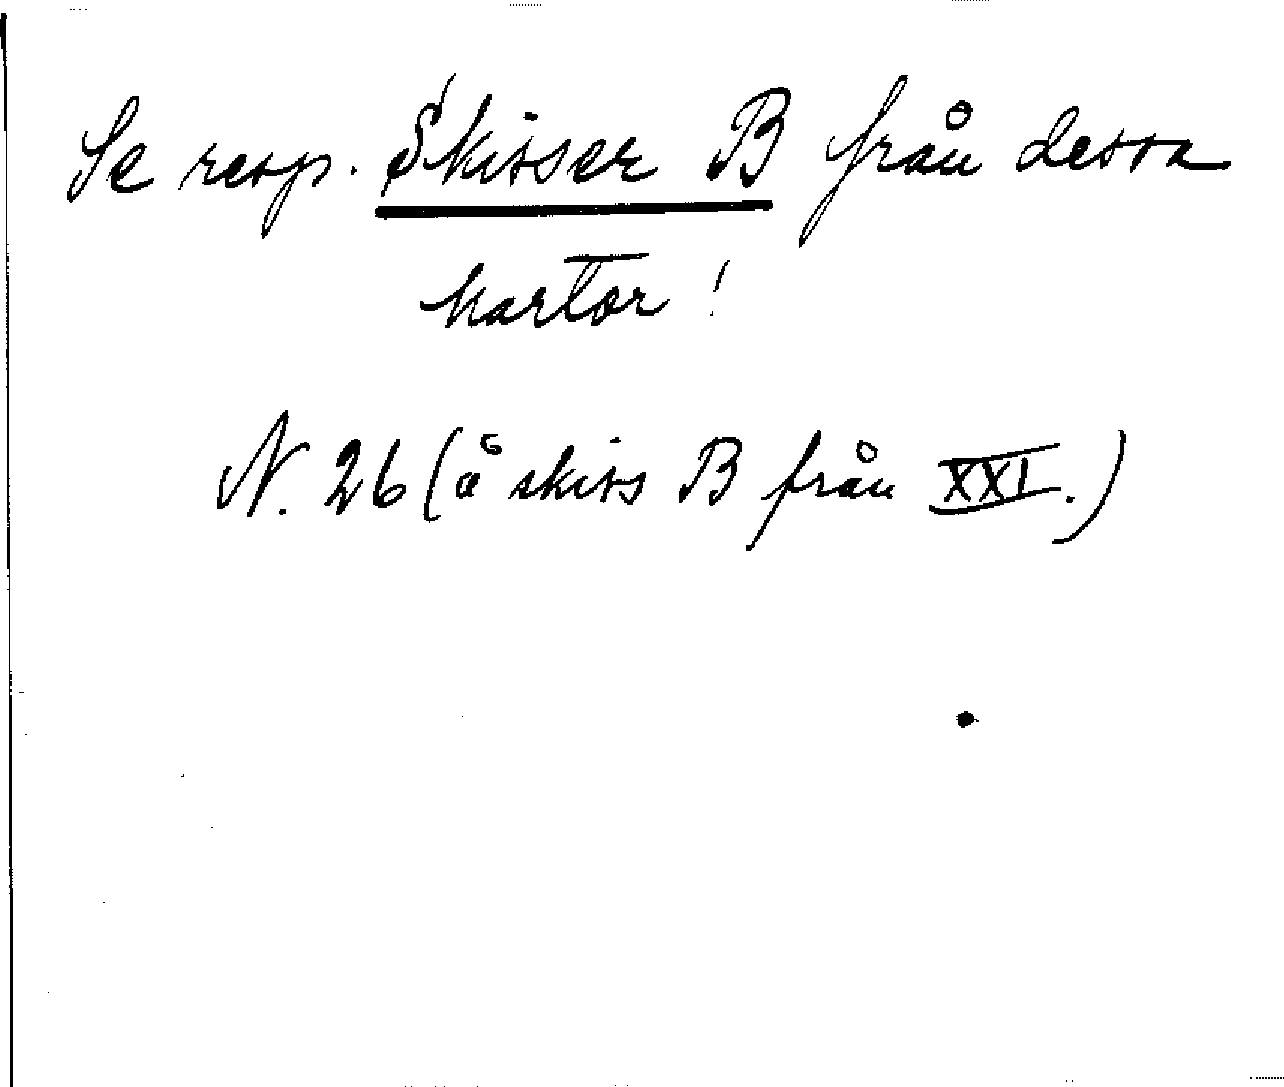 Se resp. Skisser B från dessa
kartor!
N. 26 (å skiss B från XXI.)